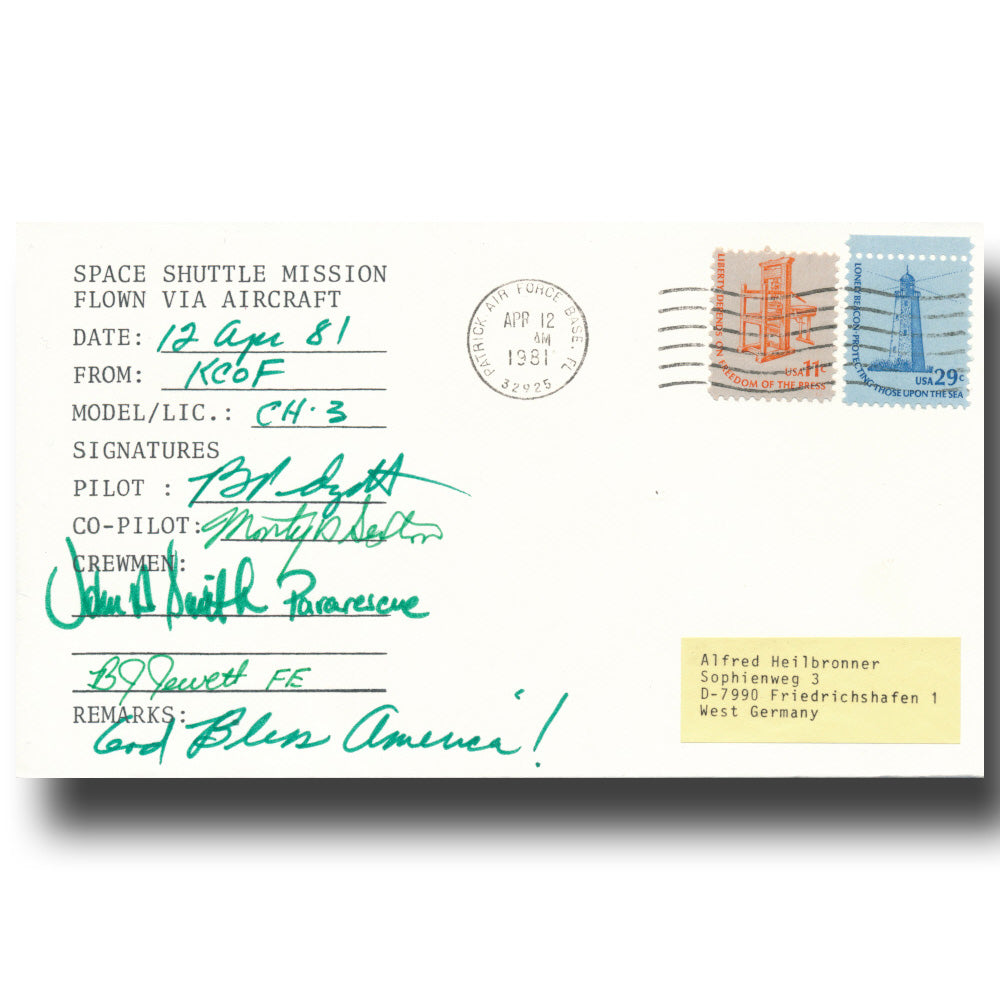 SPACE SHUTTLE MISSION
FLOWN VIA AIRCRAFT
DATE: 12 Apr 81
FROM: KCOF
MODEL/LIC.: CH-3
SIGNATURES
PILOT :
CO-PILOT: Monty D Sexton
CREWMEN:
John D Smith Pararescue
BJ Jewett FE
REMARKS:
God Bless America"!
PATRICK AIR FORCE BASE, FL
APR 12
AM
1981
32925
LIBERTY DEPENDS ON FREEDOM OF THE PRESS
USA 11c
LONELY BEACON-PROTECTING THOSE UPON THE SEA
USA 29c
Alfred Heilbronner
Sophienweg 3
D-7990 Friedrichshafen 1
West Germany